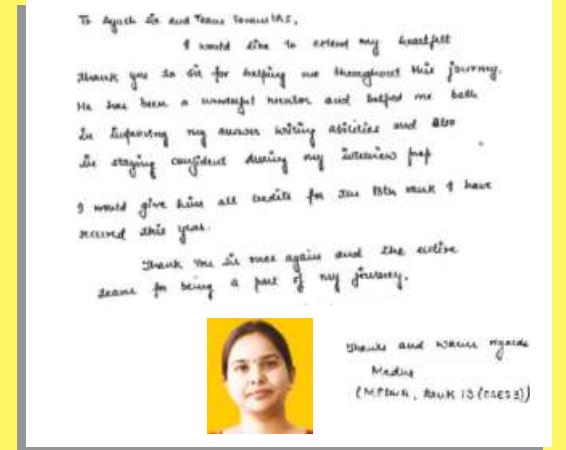 To Ayush Sir and Team ForumIAS,
I would like to extend my heartfelt
thank you to sir for helping me throughout this journey.
He has been a wonderful mentor and helped me both
in improving my answer writing abilities and also
in staying confident during my interview prep
I would give him all credits for the 13th rank I have
secured this year.
Thank you sir once again and the entire
team for being a part of my journey.
Thanks and warm regards
Rank 13 (CSE